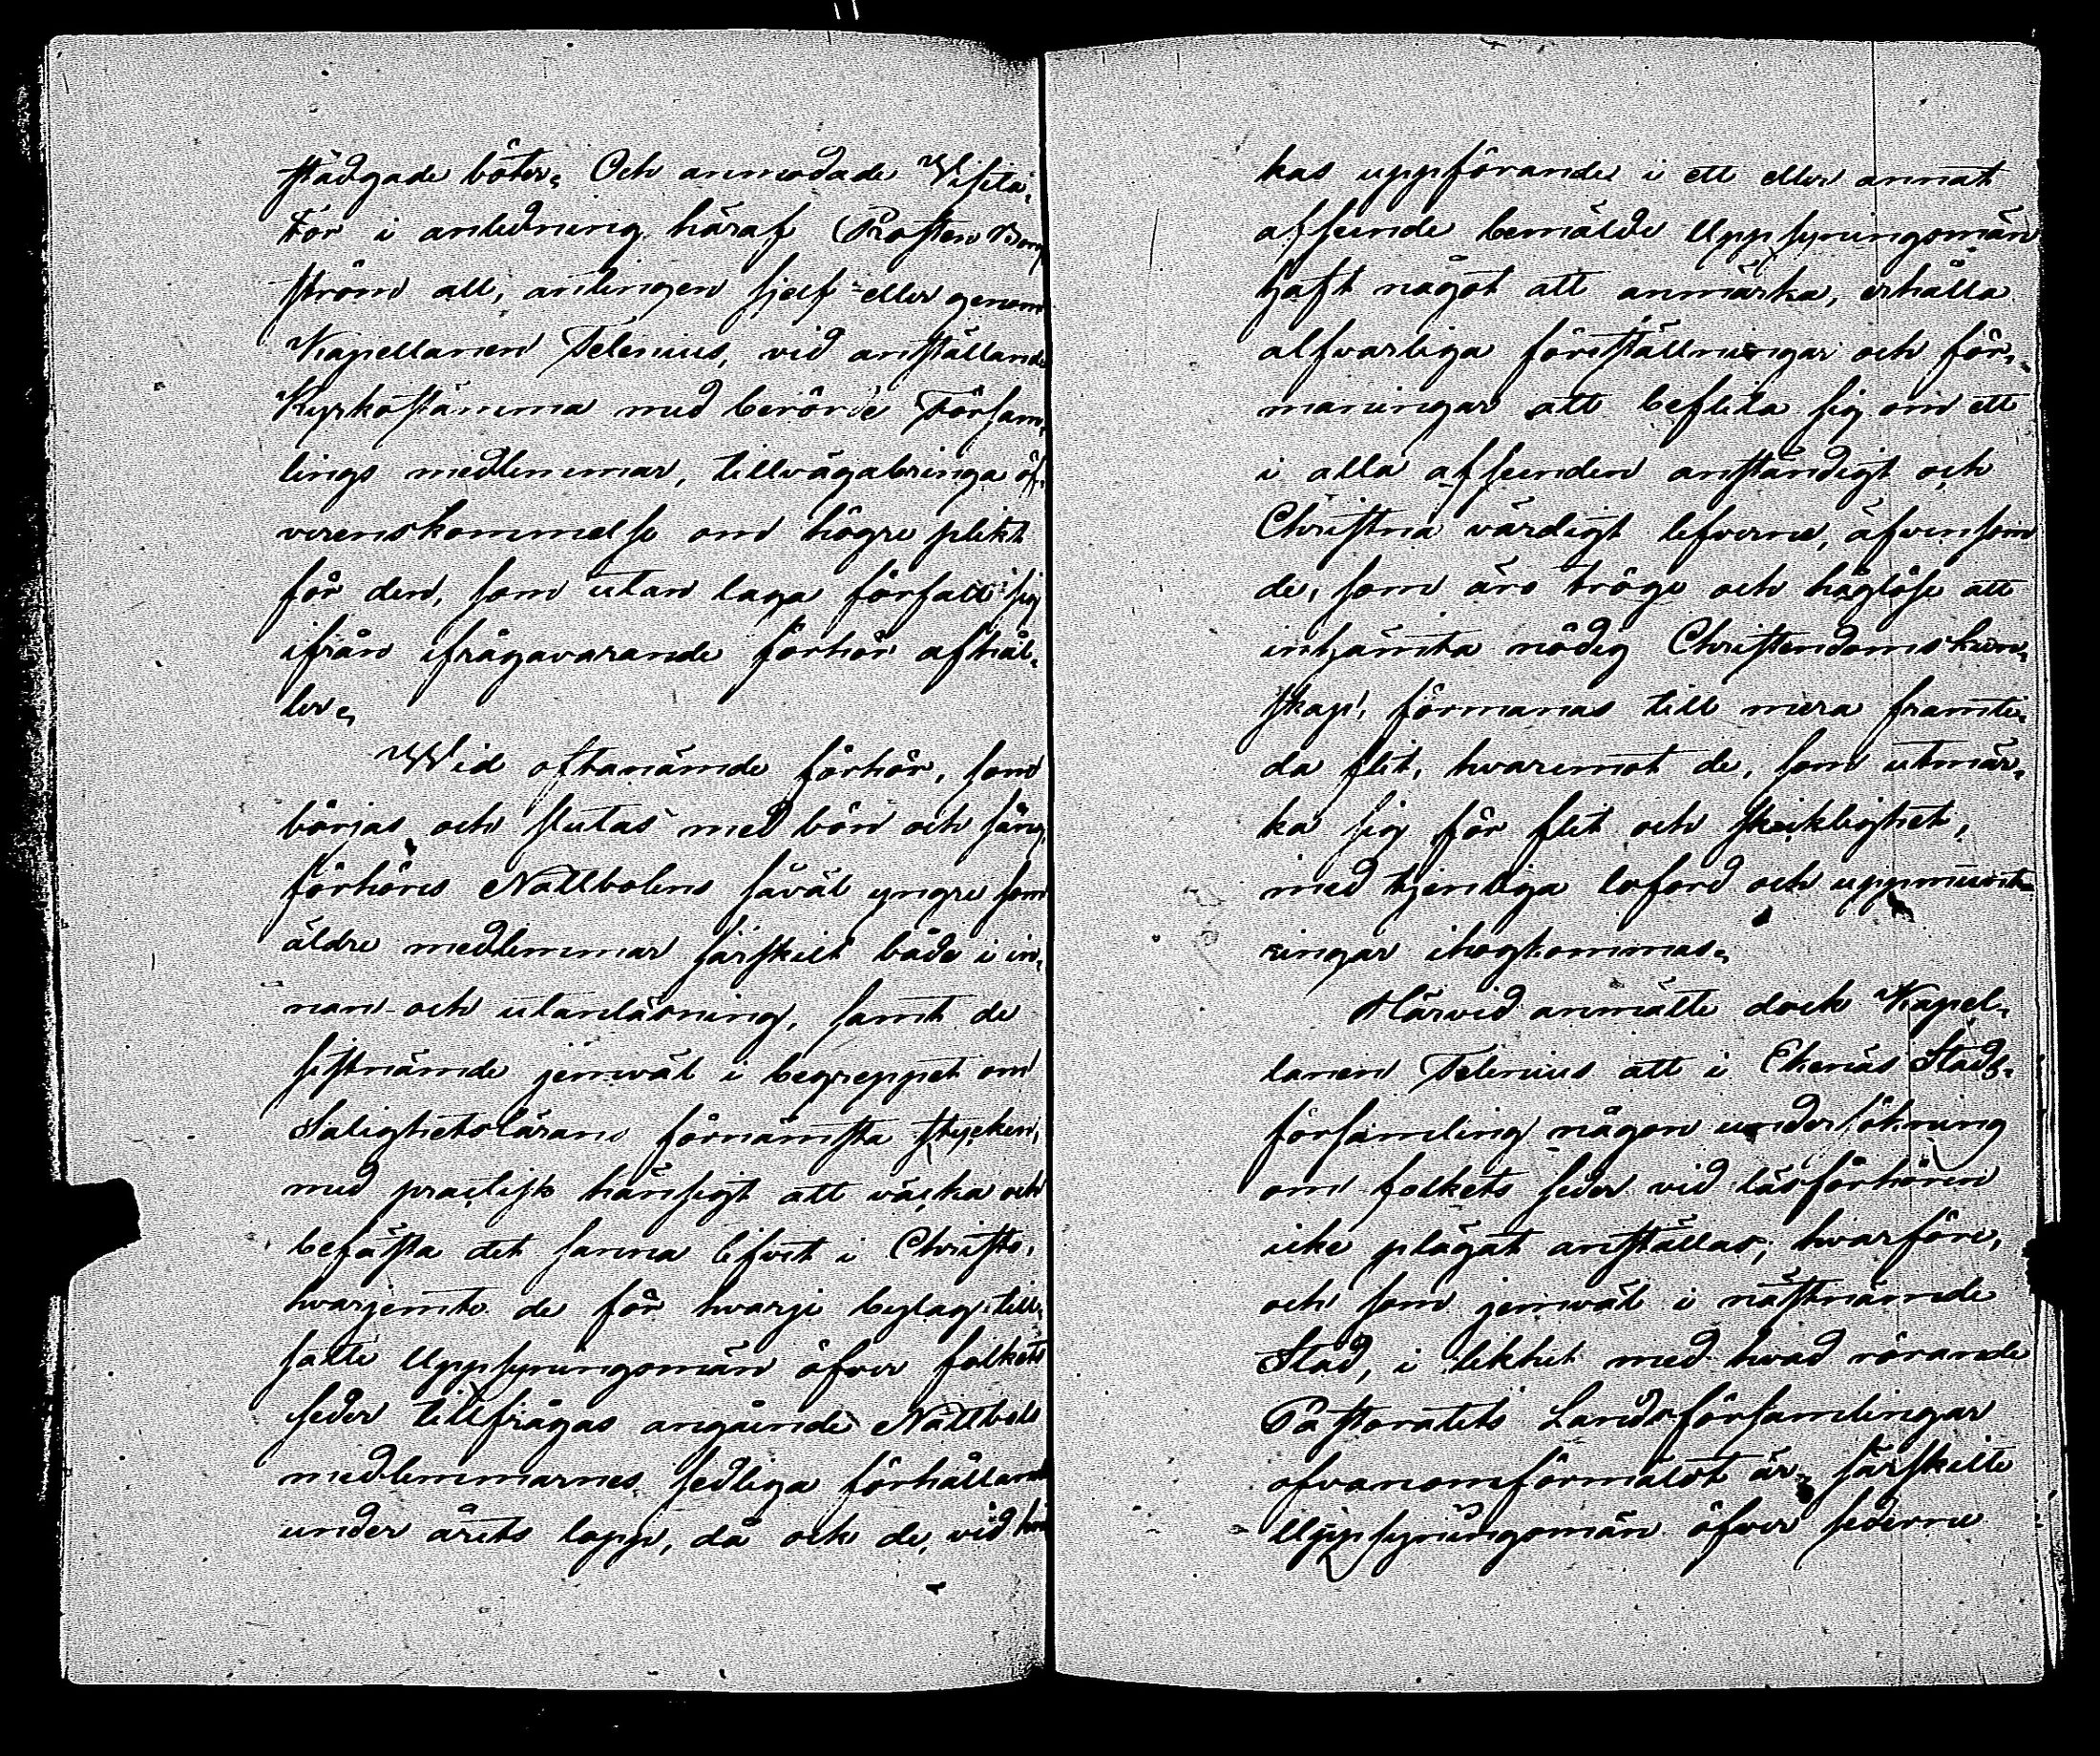 stadgade böter. Och anmodade Visita-
tor i anledning häraf Prosten Borg-
ström att, antingen sjelf eller genom
Kapellanen Telenius, vid anställande
Kyrkostämma med berörde Försam-
lings medlemmar, tillvägabringa öf-
verenskommelse om högre plikt
för den, som utan laga förfall sig
ifrån ifrågavarande förhör afhål-
ler.
Wid oftanämde förhör, som
börjas och slutas med bön och sång,
förhöres Nattbolens såväl yngre som
äldre medlemmar särskilt både i in-
nan- och utanläsning, samt de
sistnämde jemväl i begreppet om
Salighetslärans förnämsta stycken,
med practisk hänsigt att väcka och
befästa det sanna lifvet i Christo,
hvarjemte de för hvarje bylag till-
satte Uppsyningsmän öfver folkets
seder tillfrågas angående Nattbols
medlemmarnes sedliga förhållande
under årets lopp, då och de, vid
kas uppförande i ett eller annat
afseende bemälde Uppsyningsmän
haft något att anmärka, erhålla
alfvarliga föreställningar och för-
maningar att beflita sig om ett
i alla afseenden anständigt och
Christna värdigt lefverne, äfvensom
de, som äro tröge och håglöse att
inhämta nödig Christendoms kun-
skap, förmanas till mera framti-
da flit, hvaremot de, som utmär-
ka sig för flit och skicklighet,
med tjenliga loford och uppmunt-
ringar ihogkommas.
Härvid anmälte dock Kapel-
lanen Telenius att i Ekenäs Stads-
församling någon undersökning
om folkets seder vid läsförhören
icke plägat anställas; hvarföre,
och som jemväl i nästnämde
Stad, i likhet med hvad rörande
Pastoratets Landsförsamlingar
ofvanomförmäldt är, särskilte
Uppsyningsmän öfver sederne